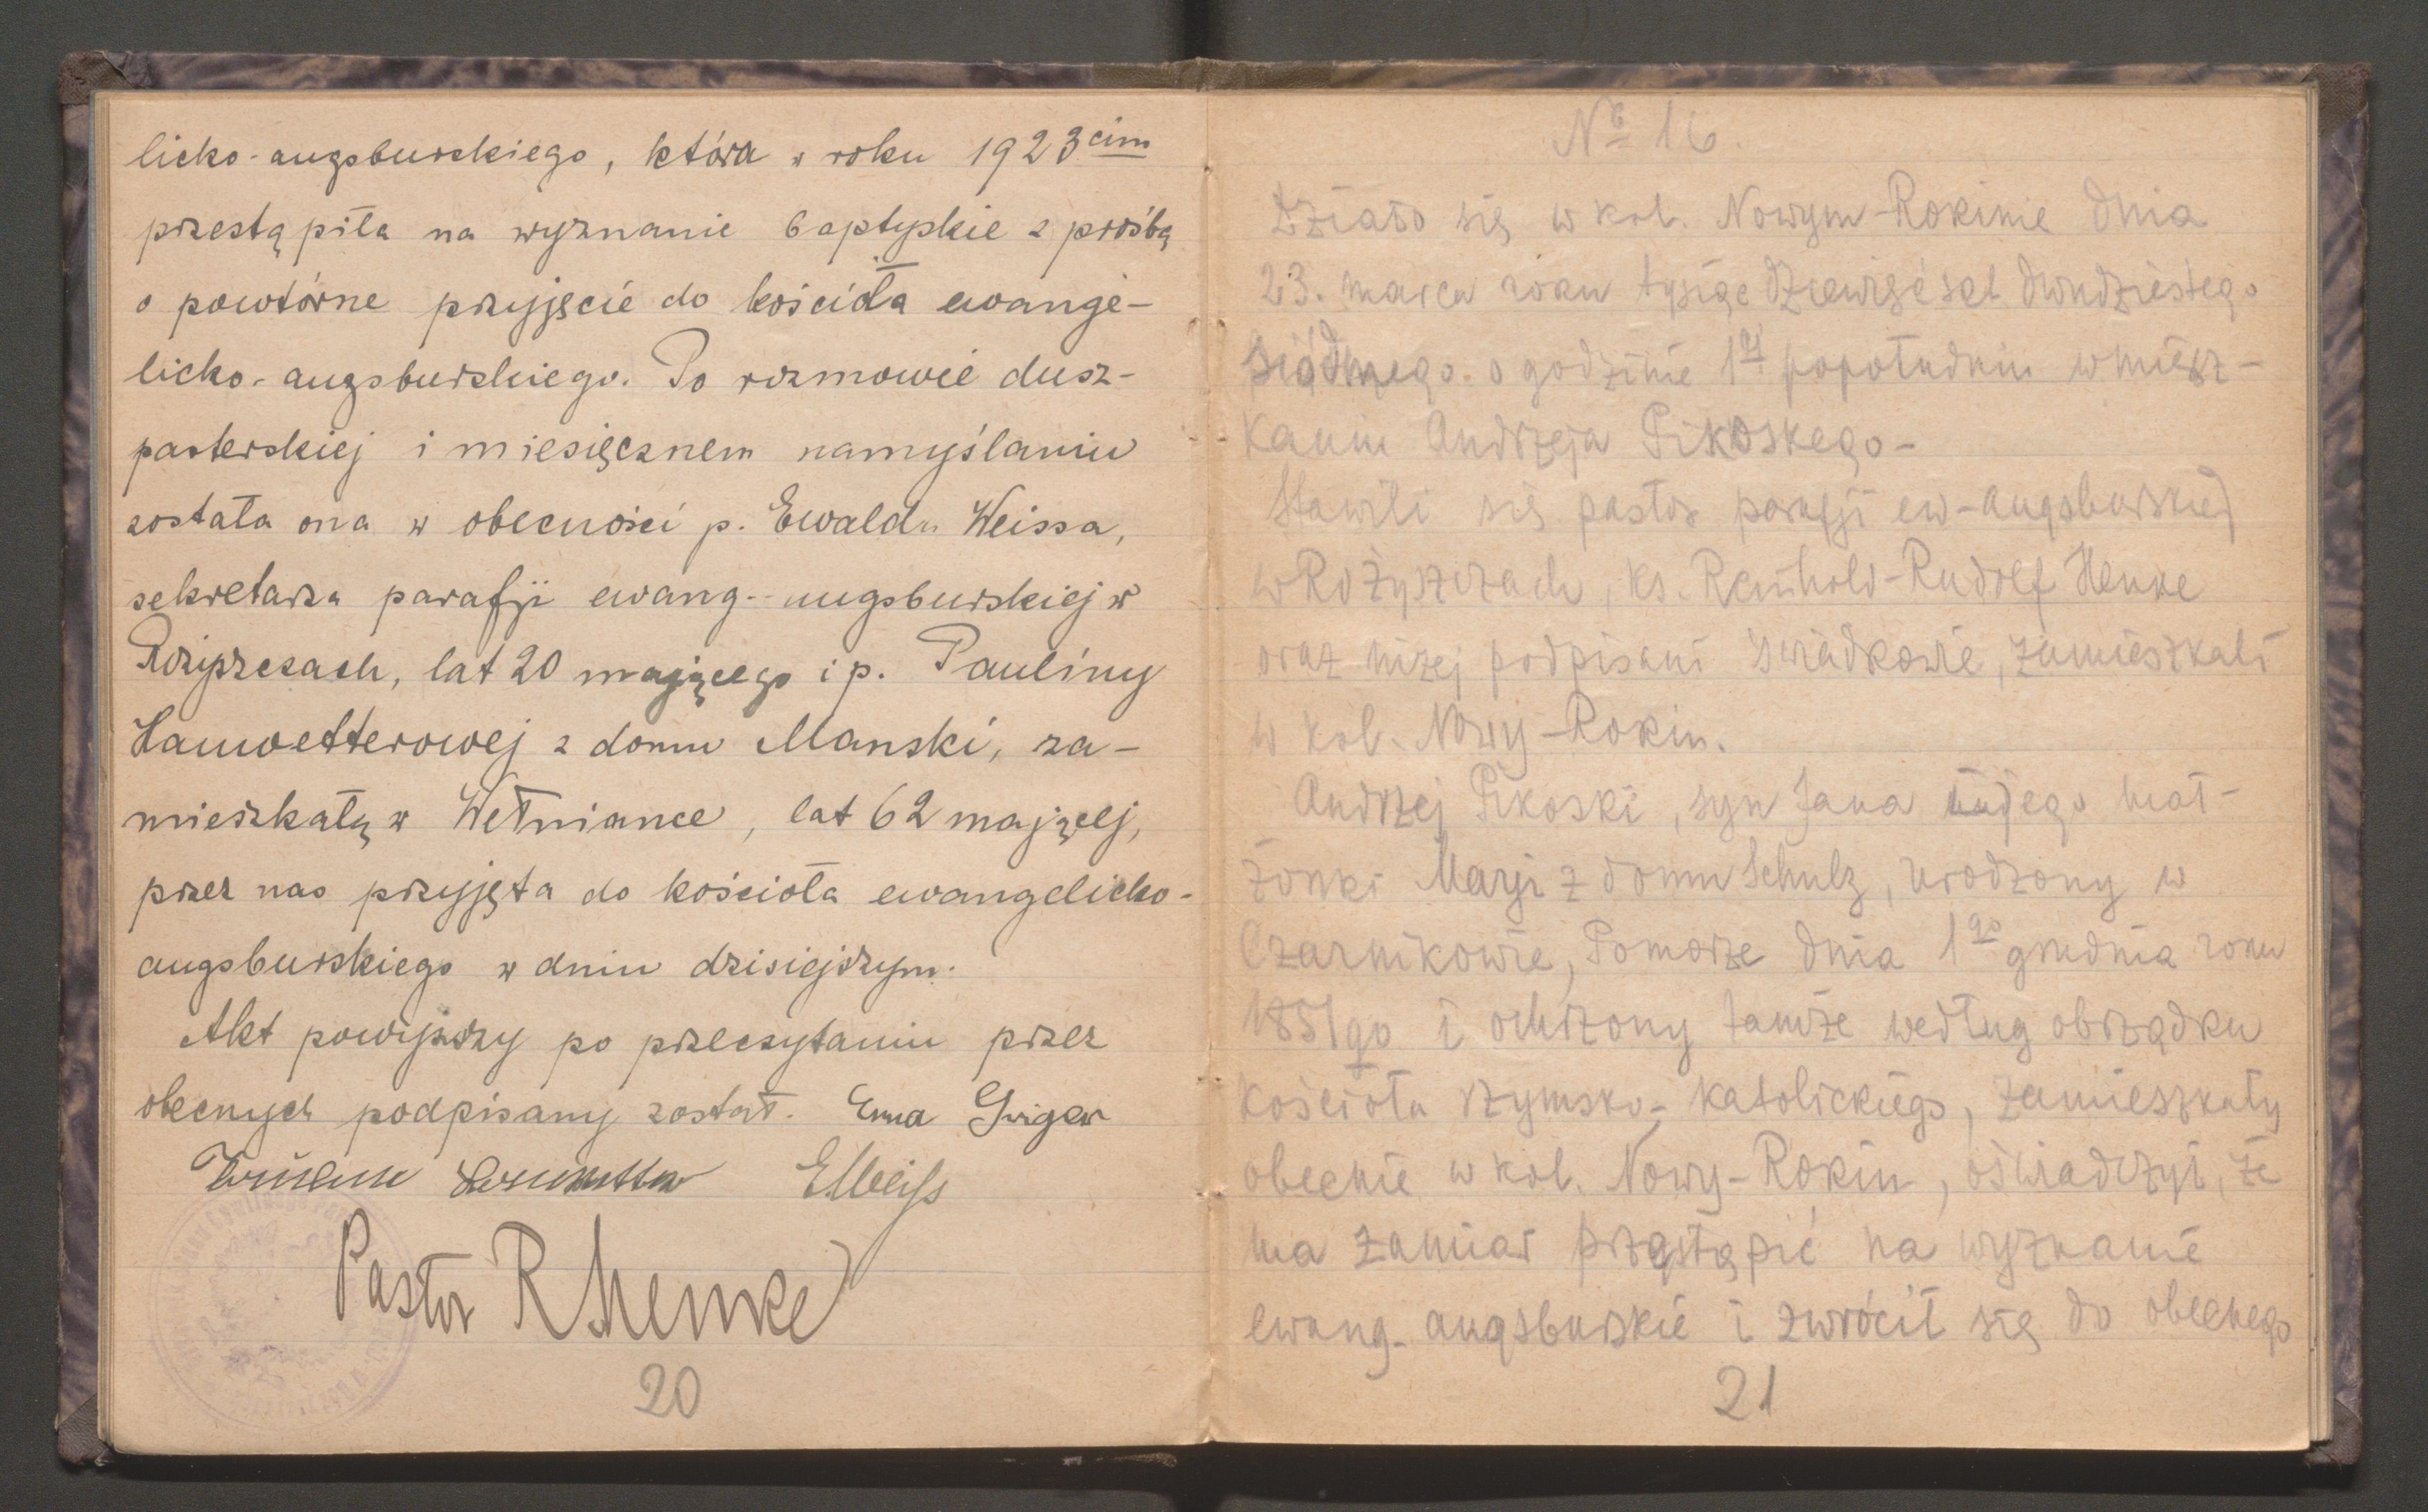 licko-augsburskiego, która w roku 1923cim
przestąpiła na wyznanie baptyskie z prośbą
o powtórne przyjęcie do kościoła ewange-
licko-augsburskiego. Po rozmowie dusz-
pasterskiej i miesięcznem namyślaniu
została ona w obecności p. Ewalda Weissa,
sekretarza parafji ewang.-augsburskiej w
Rożyszczach, lat 20 mającego i p. Pauliny
z domu Manski, za-
mieszkałą w Wełniance, lat 62 mającej,
przez nas przyjęta do kościoła ewangelicko-
augsburskiego w dniu dzisiejszym.
Akt powyższy po przeczytaniu przez
obecnych podpisany został. Emma
EWeiss
Pastor RHenke
20
No 16.
Działo się w kol. Nowym-Rokinie dnia
23. marca roku tysiąc dziewięćset dwudziestego
siódmego o godzinie 1ej popołudniu w miesz-
kaniu Andrzeja Pikoskego-
Stawili się pastor parafji ew-augsburskiej
w Rożyszczach, ks. Reinhold-Rudolf Henke
oraz niżej podpisani świadkowie, zamieszkali
w kol. Nowy-Rokin.
Andrzej Pikoski, syn Jana i jego mał-
żonki Marji z domu Schulz, urodzony w
Czarnikowie, Pomorze dnia 1go grudnia roku
1851go i ochrzony tamże według obrządku
kościoła rzymsko-katolickiego, zamieszkały
obecnie w kol. Nowy-Rokin, oświadczył, że
ma zamiar przestąpić na wyznanie
ewang-augsburskie i zwrócił się do obecnego
21